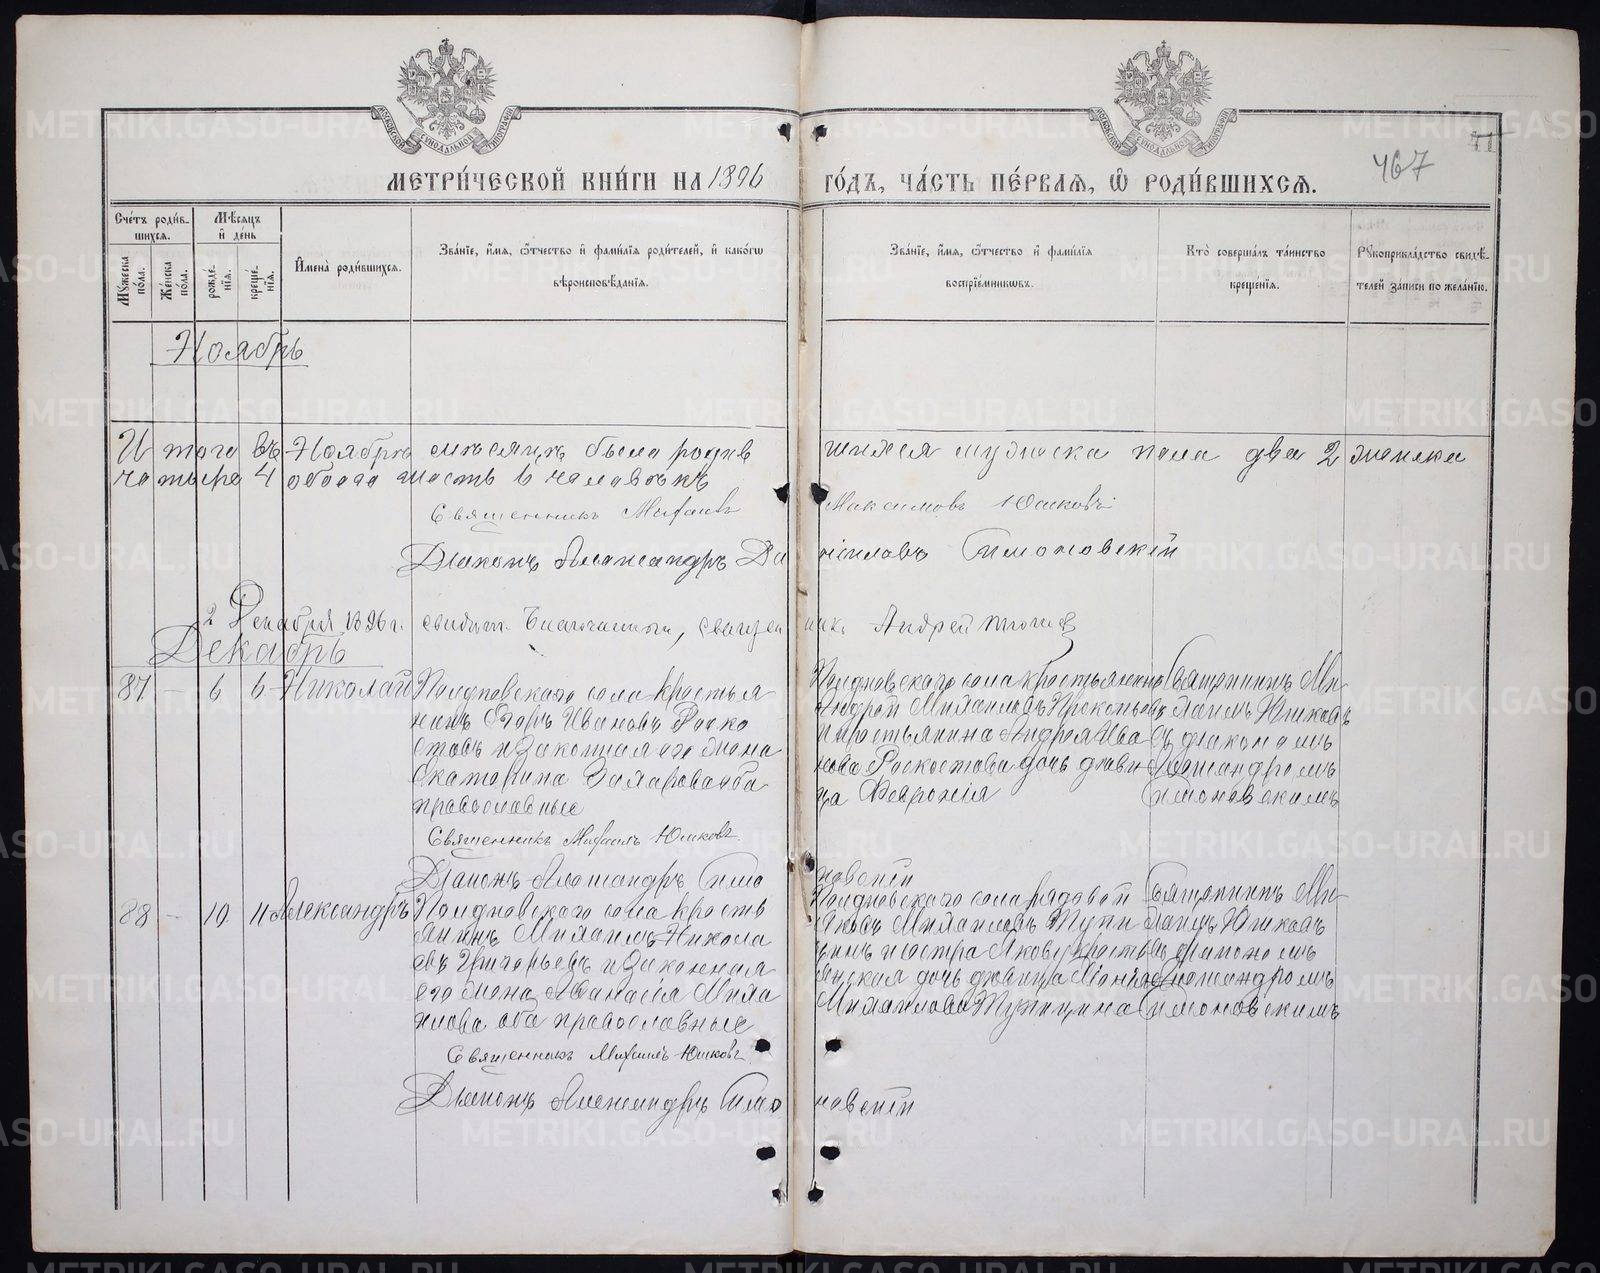 МЕТРИ́ЧЕСКОЙ КНИ́ГИ НА 1896 ГО́ДЪ, ЧА́СТЬ ПЕ́РВАЯ, Ѿ РОДИ́ВШИХСЯ.
467
Сче́тъ роди́в-
шихся.
Мꙋ́жеска по́ла.
Же́нска по́ла.
Мѣ́сяцъ
и де́нь
рожде́нія.
креще́нія.
Имена̀ роди́вшихся.
Зва́ніе, и́мя, ѻ́тчество и фами́лія роди́телей, и како́гѡ
вѣроисповѣ́данія.
Зва́ніе, и́мя, ѻ́тчество и фами́лія
воспріе́мникѡвъ.
Кто̀ соверша́лъ та́инство
креще́нія.
Рꙋкоприкла́дство свидѣ́-
телей за́писи по жела́нію.
Ноябрь
Итого въ Ноябрѣ мѣсяцѣ было родив шихся мужеска пола два 2 женска
четыре 4 обоего шесть 6 человѣкъ
Священникъ Михаилъ Максимовъ Юшковъ
Діаконъ Александръ Да ніиловъ Симоновскій
2 Декабря 1896 г. свидѣт. Благочинный, священ никъ Андрей
Декабрь
87 — 6 6 Николай
Полдновскаго села крестья
нинъ Егоръ Ивановъ Роско
стовъ и законная его жена
Екатерина
православные
Полдновскаго села крестьянинъ
Андрей Михаиловъ Прокопьевъ
и крестьянина Андрея Ива
нова Роскостова дочь дѣви
ца Феврония
Священникъ Ми-
хаилъ Юшковъ
съ діакономъ
Александромъ
Симоновскимъ
Священникъ Михаилъ Юшковъ
Діаконъ Александръ Симо новскій
88 — 10 11 Александръ
Полдновскаго села кресть
янинъ Михаилъ Никола
евъ Григорьевъ и законная
его жена Аѳанасія Миха
илова оба православные
Полдновскаго села рядовой
Яковъ Михаиловъ Тупи
цинъ и сестра Якову кресть
янская дочь дѣвица
Михаилова Тупицина
Священникъ Ми-
хаилъ Юшковъ
съ діакономъ
Александромъ
Симоновскимъ
Священникъ Михаилъ Юшковъ
Діаконъ Александръ Симо новскій